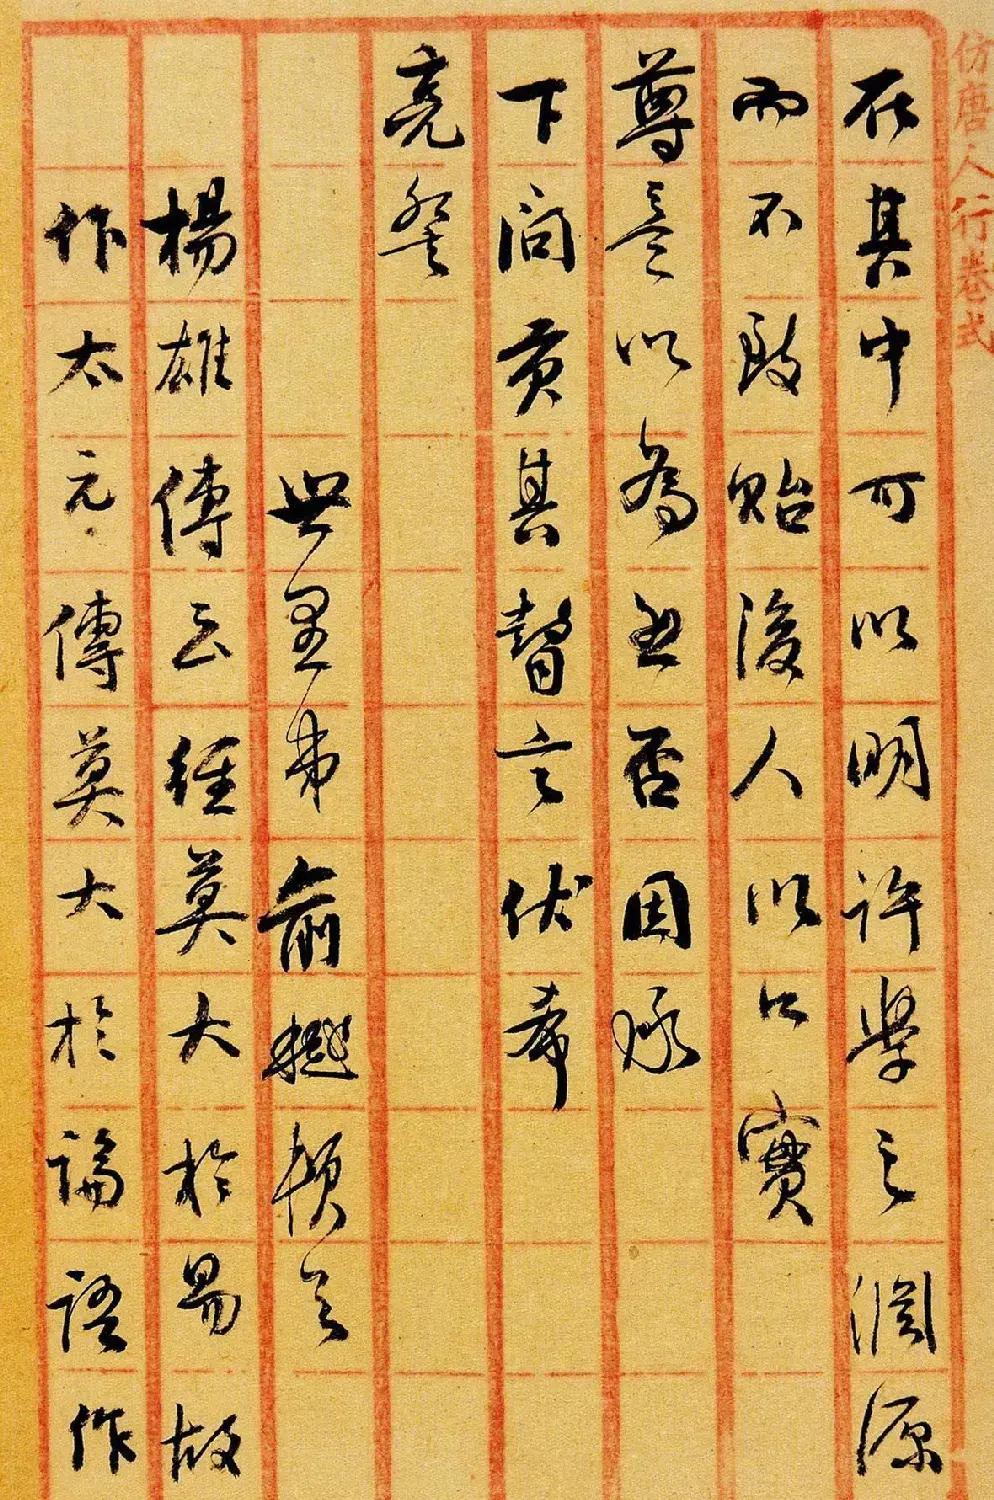 仿唐人行卷式
在其中可以明許學之淵源
而不致貽後人以口實
尊意以為然否因承
下問貢其瞽言伏希
亮詧
世星弟俞樾頓首
楊雄傳云經莫大於易故
作太元傳莫大於論語作